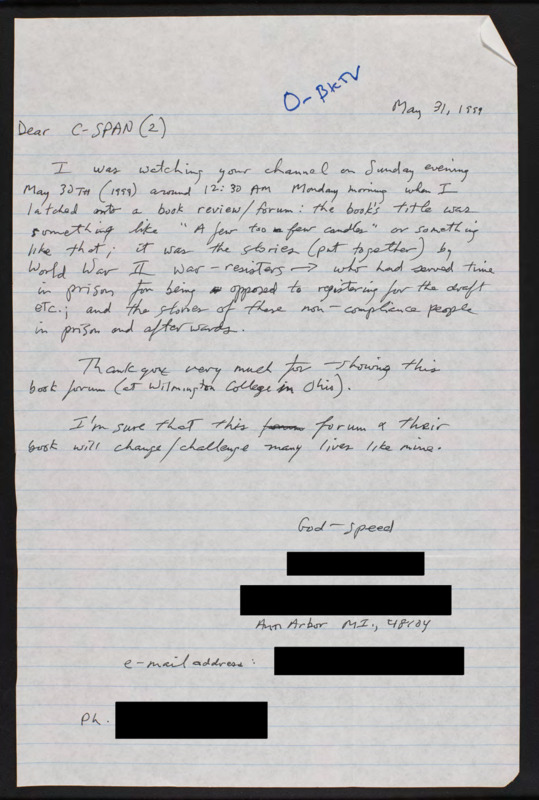 O-BKTV
May 31, 1999
Dear C-SPAN (2)
I was watching your channel on Sunday evening
May 30TH (1999) around 12:30 AM Monday morning when I
latched onto a book review/forum: the book's title was
something like "A few too few candles" or something
like that; it was the stories (put together) by
World War II war-resisters → who had served time
in prison for being opposed to registering for the draft
ETC.; and the stories of these non-compliance people
in prison and afterwards.
Thank you very much for showing this
book forum (at Wilmington College in Ohio).
I'm sure that this forum & their
book will change/challenge many lives like mine.
God-speed
Ann Arbor M.I., 48104
e-mail address:
Ph.